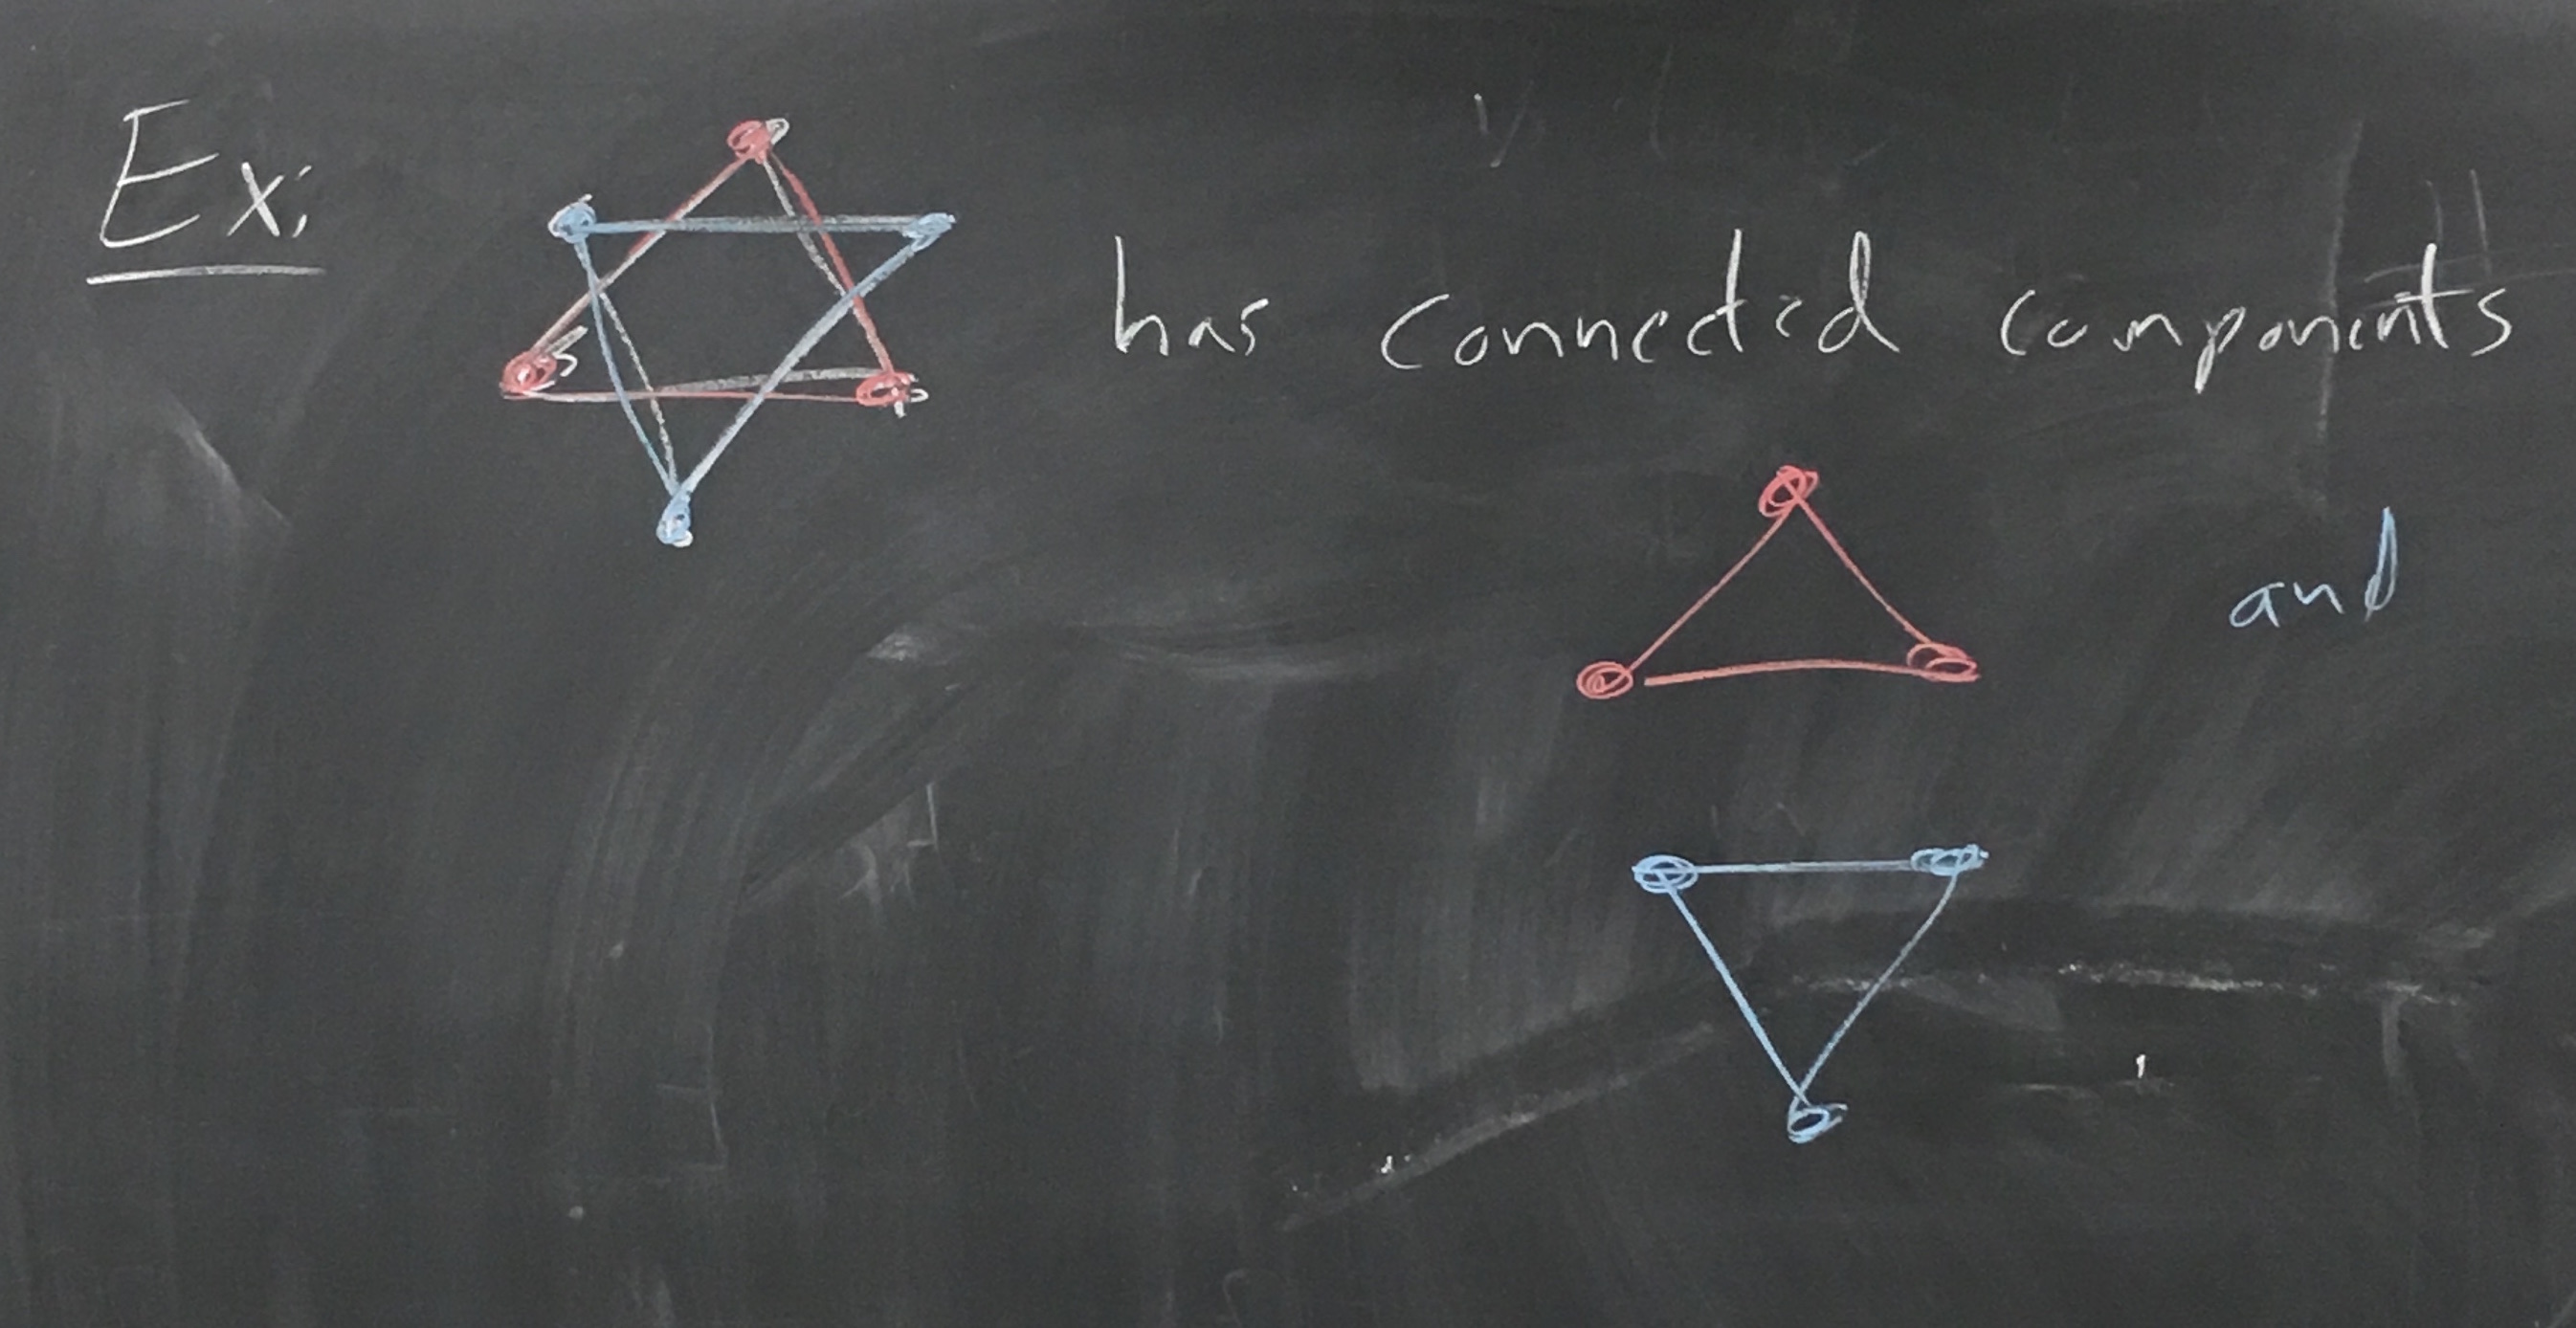 Ex:
has connected components
and